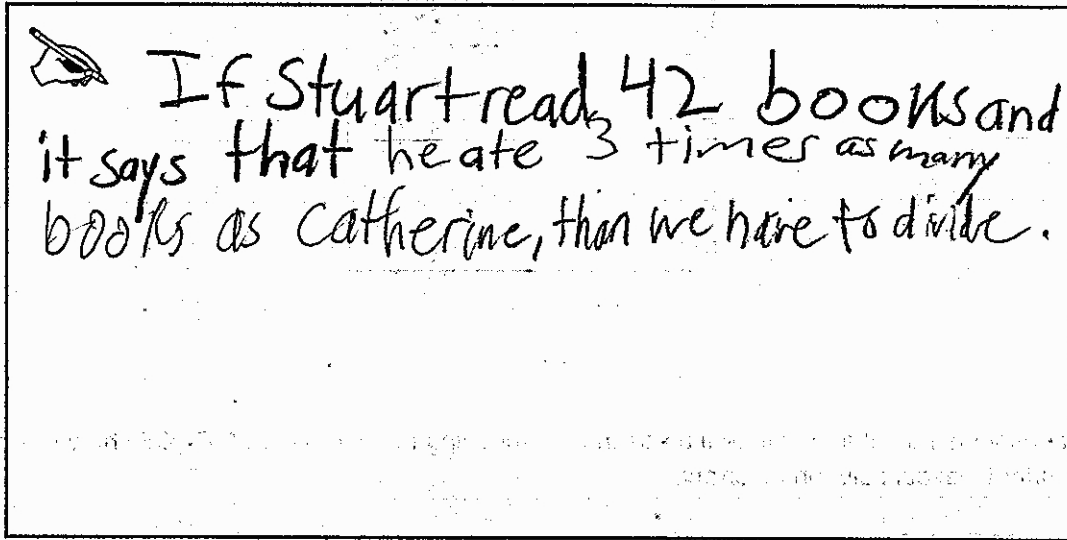 If Stuart read 42 books and
it says that he ate 3 times as many
books as Catherine, than we have to divide.